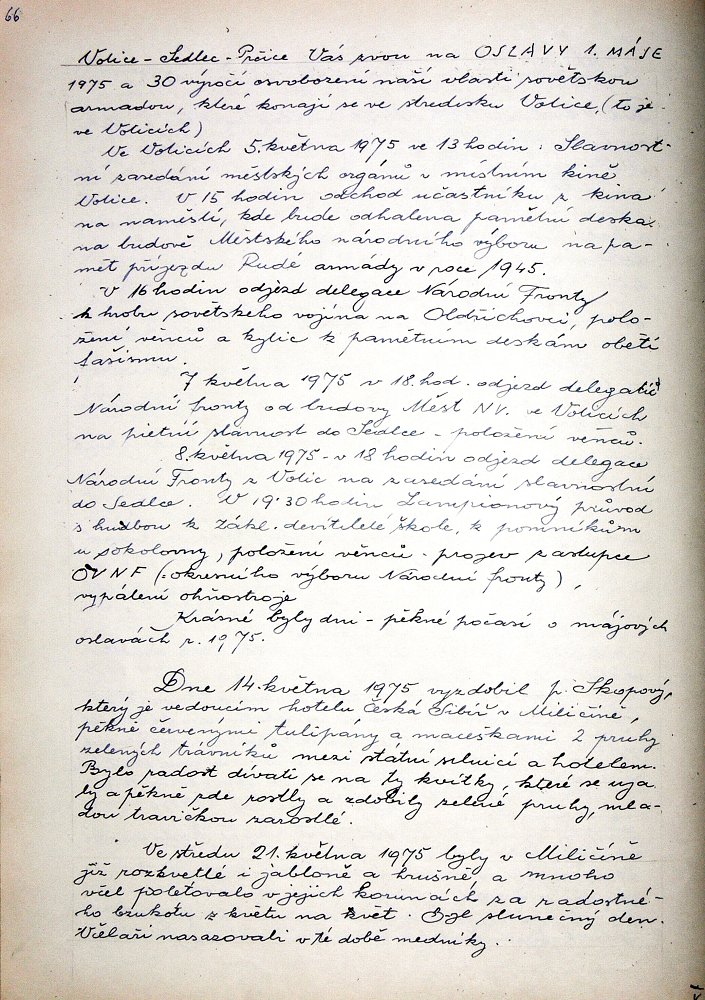 66
Votice - Sedlec - Prčice Vás zvou na OSLAVY 1. MÁJE
1975 a 30 výročí osvobození naší vlasti sovětskou
armadou, které konají se ve stredisku Votice, (to je
ve Voticích)
Ve Voticích 5. května 1975 ve 13 hodin: Slavnost-
ní zasedání městských orgánů v místním kině
Votice. V 15 hodin odchod učastníku z kina
na naměstí, kde bude odhalena pamětní deska
na budově Městského národního výboru na pa-
mět příjezdu Rudé armády v roce 1945.
V 16 hodin odjezd delegace Národní Fronty
k hrobu sovětského vojína na Oldřichovci, polo-
žení věnců a kytic k pamětním deskám obětí
fašismu.
7 května 1975 v 18. hod. odjezd delegací
Národní fronty od budovy Měst NV. ve Voticích
na pietní slavnost do Sedlce - položení věnců.
8. května 1975 - v 18 hodin odjezd delegace
Národní Fronty z Votic na zasedání slavnostní
do Sedlce. V 19.30 hodin Lampionový průvod
s hudbou k Zákl. devítileté škole, k pomníkům
u sokolovny, položení věnců - projev zastupce
OV NF (= okresního výboru Národní fronty),
vypálení ohňostroje
Krásné byly dni - pěkné počasí o májových
oslavách r. 1975.
Dne 14. května 1975 vyzdobil p. Skopový,
který je vedoucím hotelu Česká Sibiř v Miličíně,
pěkně červenými tulipány a maceškami 2 pruhy
zelených trávníků mezi státní silnicí a hotelem.
Bylo radost dívati se na ty kvítky, které se uja
ly a pěkně zde rostly a zdobily zelené pruhy, mla-
dou travičkou zarostlé.
Ve středu 21. května 1975 byly v Miličíně
již rozkvetlé i jabloně a hrušně a mnoho
včel poletovalo v jejich korunách za radostné-
ho bzukotu z květu na květ. Byl slunečný den.
Včelaři nasazovali v té době medníky.